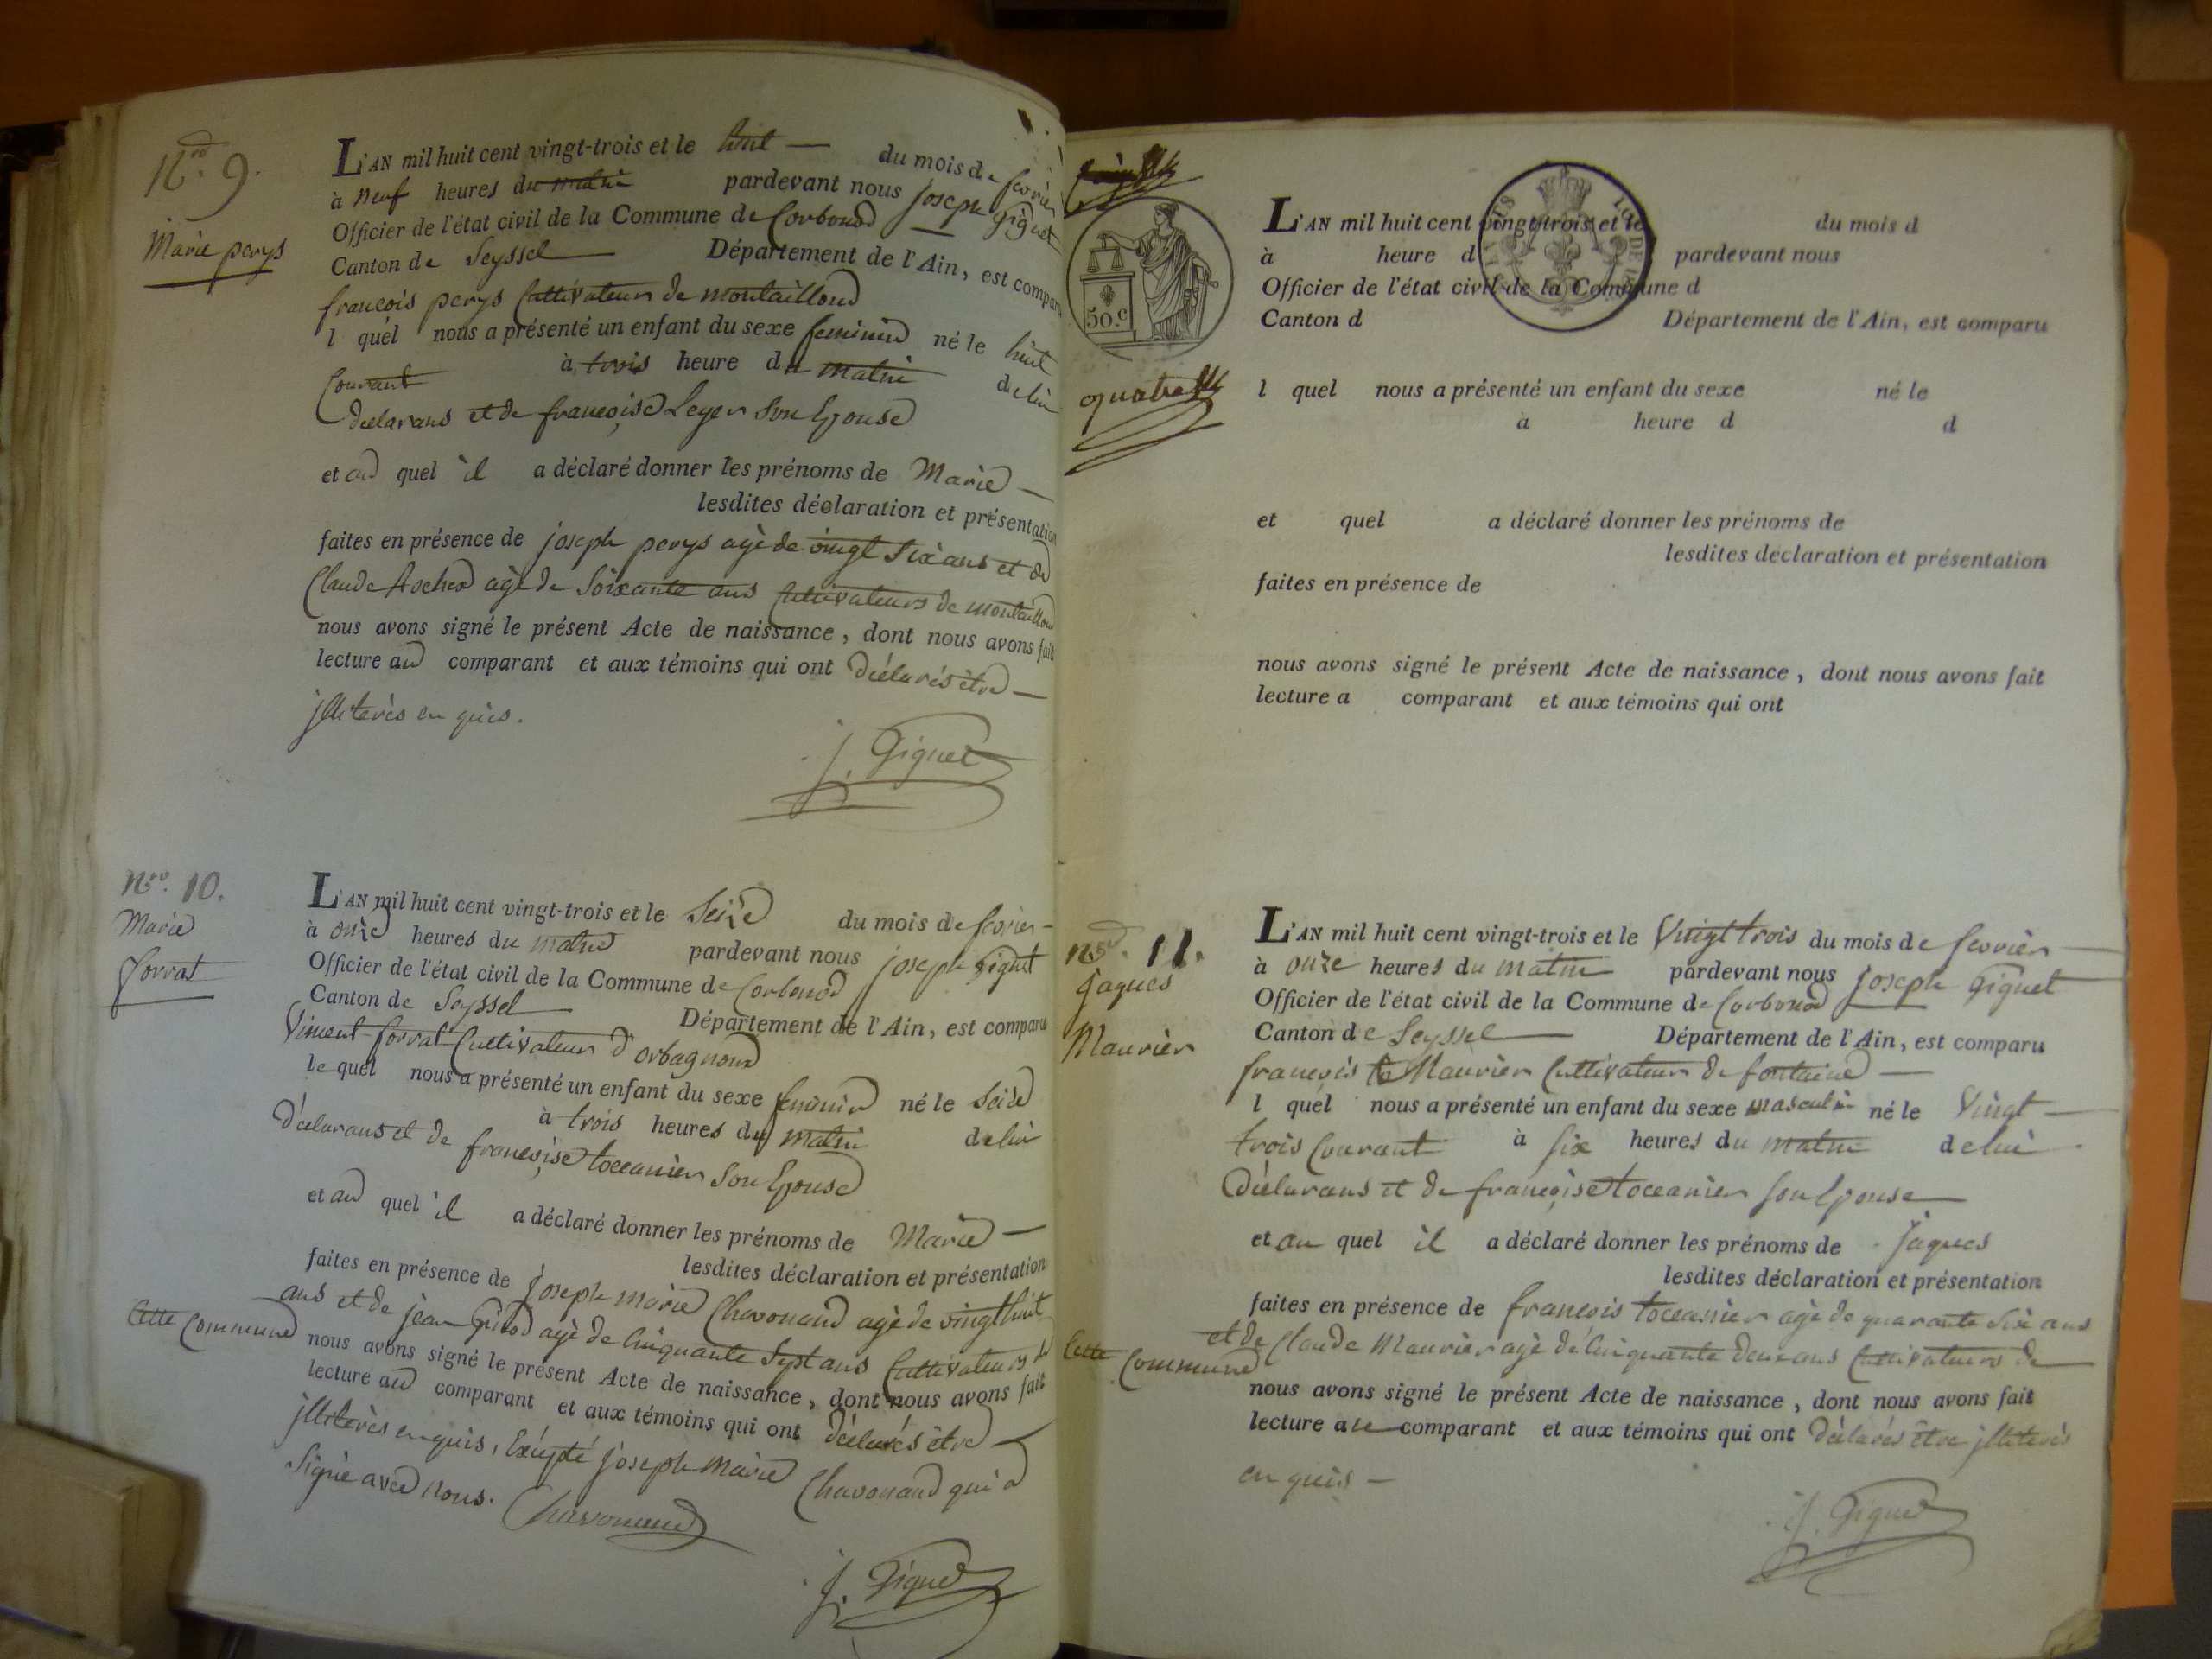 Nro. 9.
Marie perys
L'AN mil huit cent vingt-trois et le huit du mois de fevrier
à neuf heures du matin pardevant nous joseph Giguet
Officier de l'état civil de la Commune de Corbonod
Canton de Seyssel Département de l'Ain, est comparu
francois perys Cultivateur de montailloud
l quel nous a présenté un enfant du sexe feminin né le huit
Courant à trois heure du matin de lui
declarans et de francoise Leyer son Epouse
et au quel il a déclaré donner les prénoms de Marie
lesdites déclaration et présentation
faites en présence de joseph perys agé de vingt six ans et de
Claude agé de Soixante ans Cultivateurs de montailloud
nous avons signé le présent Acte de naissance, dont nous avons fait
lecture au comparant et aux témoins qui ont déclarés être
jlliterés enquis.
J. Giguet
Nro. 10.
Marie
forrat
L'AN mil huit cent vingt-trois et le Seize du mois de fevrier
à onze heures du matin pardevant nous joseph Giguet
Officier de l'état civil de la Commune de Corbonod
Canton de Seyssel Département de l'Ain, est comparu
Vincent forrat Cultivateur d'orbagnoux
le quel nous a présenté un enfant du sexe feminin né le Seize
à trois heures du matin de lui
déclarans et de francoise toccanier son Epouse
et au quel il a déclaré donner les prénoms de Marie
lesdites déclaration et présentation
faites en présence de joseph marie Chavonand agé de vingt huit
ans et de jean Girod agé de Cinquante Sept ans Cultivateurs de
Cette Commune
nous avons signé le présent Acte de naissance, dont nous avons fait
lecture au comparant et aux témoins qui ont déclarés être
jlliterés enquis, Excepté joseph Marie Chavonand qui a
Signé avec nous. Chavonand
J. Giguet
50.c
quatre
L'AN mil huit cent vingt-trois et le du mois d
à heure d pardevant nous
Officier de l'état civil de la Commune d
Canton d Département de l'Ain, est comparu
l quel nous a présenté un enfant du sexe né le
à heure d d
et quel a déclaré donner les prénoms de
lesdites déclaration et présentation
faites en présence de
nous avons signé le présent Acte de naissance, dont nous avons fait
lecture a comparant et aux témoins qui ont
Nro. 11.
Jaques
Maurier
L'AN mil huit cent vingt-trois et le Vingt trois du mois de fevrier
à onze heures du matin pardevant nous joseph Giguet
Officier de l'état civil de la Commune de Corbonod
Canton de Seyssel Département de l'Ain, est comparu
francois Maurier Cultivateur de fontaine
l quel nous a présenté un enfant du sexe masculin né le Vingt
trois Courant à six heures du matin de lui
Déclarans et de francoise toccanier son Epouse
et au quel il a déclaré donner les prénoms de jaques
lesdites déclaration et présentation
faites en présence de francois toccanier agé de quarante Six ans
et de Claude Maurier agé de Cinquante deux ans Cultivateurs de
Cette Commune
nous avons signé le présent Acte de naissance, dont nous avons fait
lecture au comparant et aux témoins qui ont déclarés être jlliterés
enquis
J. Giguet